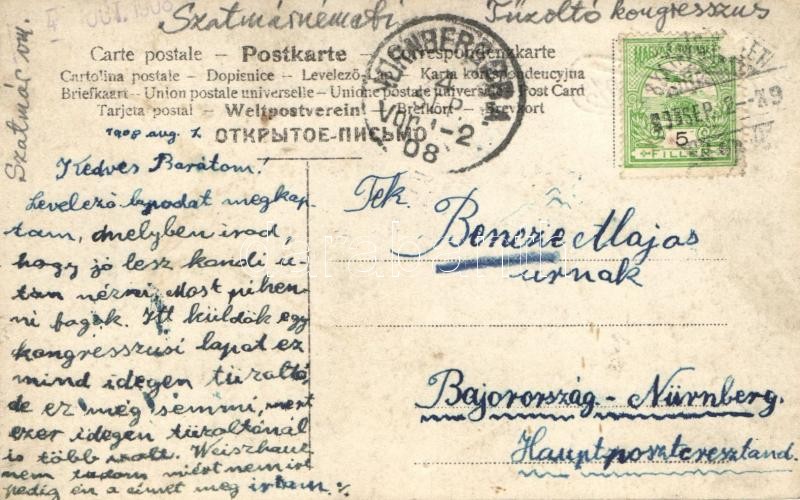 Szatmárnémeti Tűzoltó kongresszus
Carte postale – Postkarte –
Cartolina postale – Dopisnice – Levelező- – Karta korespondencyjna
Briefkaart – Union postale universelle – Unione postale universale – Post Card
Tarjeta postal – Weltpostverein – Brefkort – Brevkort
ОТКРЫТОЕ-ПИСЬМО
NÜRNBERG
Vor. 1-2
08
SEP.
5
FILLÉR
Szatmár vm.
1908 aug.
Kedves Barátom!
Levelező lapodat megkap-
tam, melyben irod,
hogy jó lesz kandi u-
tán nézni. Most pihen-
ni fagok. Itt küldök egy
kongresszusi lapot ez
mind idegen tüzoltó,
de ez még semmi, mert
ezer idegen tüzoltónál
is több volt.
nem tudom miért nem irt
pedig én a cimét meg irtam.
Tek.
Bencze Majas
urnak
Bajorország - Nürnberg.
Hauptposterestand.